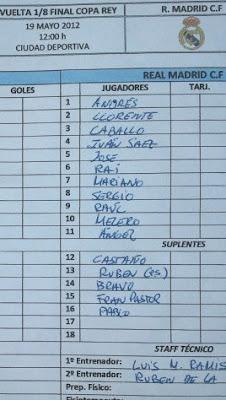 VUELTA 1/8 FINAL COPA REY R. MADRID C.F
19 MAYO 2012
12:00 h
CIUDAD DEPORTIVA
REAL MADRID C.F
GOLES JUGADORES TARJ.
1 ANDRÉS
2 LLORENTE
3 CABALLO
4 IVÁN SAEZ
5 JOSE
6 RAI
7 MARIANO
8 SERGIO
9 RAÚL
10 MELERO
11 ÁNGEL
SUPLENTES
12 CASTAÑO
13 RUBEN (PS)
14 BRAVO
15 FRAN PASTOR
16 PABLO
17
18
STAFF TÉCNICO
1º Entrenador: LUIS M. RAMIS
2º Entrenador: RUBEN DE LA
Prep. Físico: